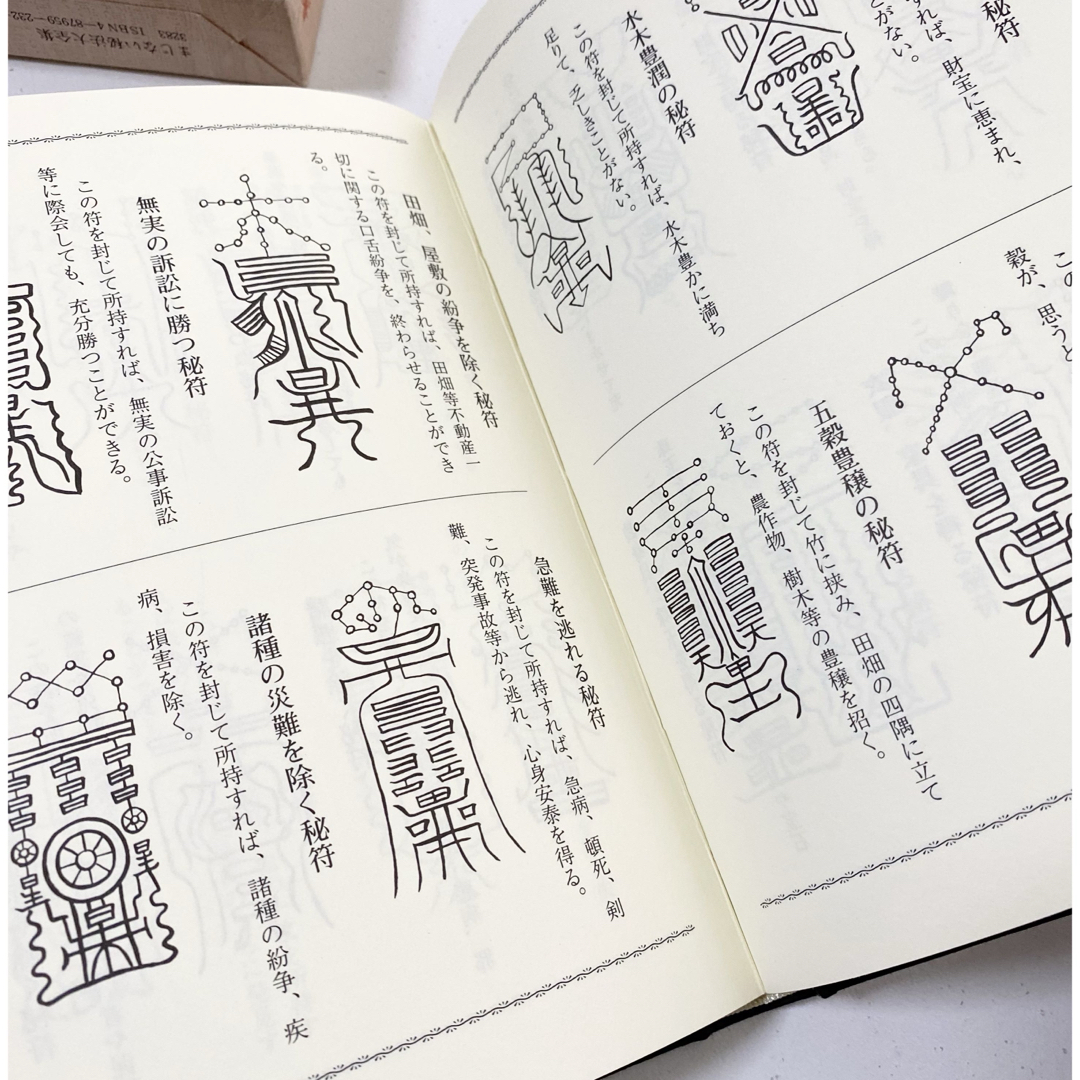 まじない秘法大全集
3283 ISBN 4-87959-232
秘符
すれば、財宝に恵まれ、
とがない。
水木豊潤の秘符
この符を封じて所持すれば、水木豊かに満ち
足りて、乏しきことがない。
穀が、思うと
五穀豊穣の秘符
この符を封じて竹に挟み、田畑の四隅に立て
ておくと、農作物、樹木等の豊穣を招く。
田畑、屋敷の紛争を除く秘符
この符を封じて所持すれば、田畑等不動産一
切に関する口舌紛争を、終わらせることができ
る。
無実の訴訟に勝つ秘符
この符を封じて所持すれば、無実の公事訴訟
等に際会しても、充分勝つことができる。
急難を逃れる秘符
この符を封じて所持すれば、急病、頓死、剣
難、突発事故等から逃れ、心身安泰を得る。
諸種の災難を除く秘符
この符を封じて所持すれば、諸種の紛争、疾
病、損害を除く。